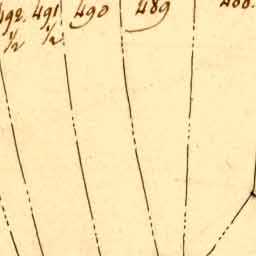 492. 491 490 489 488.
½ ½